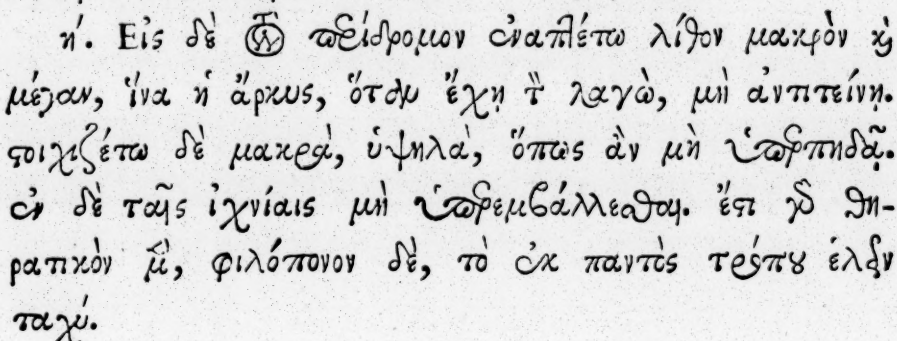 η΄. Εἰς δὲ τὸν περίδρομον ἐναπτέτω λίθον μακρὸν καὶ
μέγαν, ἵνα ἡ ἄρκυς, ὅταν ἔχῃ τὸν λαγὼ, μὴ ἀντιτείνῃ.
στοιχιζέτω δὲ μακρὰ, ὑψηλὰ, ὅπως ἂν μὴ ὑπερπηδᾷ.
ἐν δὲ ταῖς ἰχνίαις μὴ ὑπερεμβάλλεσθαι. ἔστι γὰρ θη-
ρατικὸν μὲν, φιλόπονον δὲ, τὸ ἐκ παντὸς τρόπου ἑλεῖν
ταχύ.